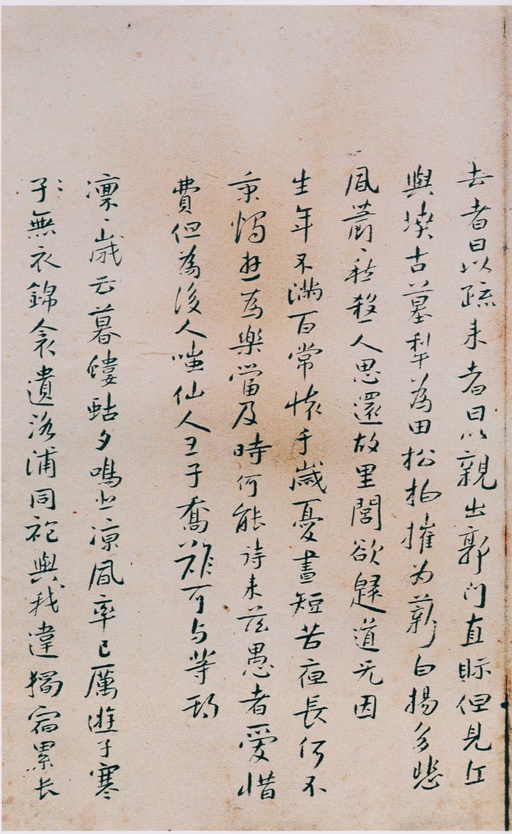 去者日以疏来者日以親出郭门直眎但見丘
與墳古墓犁為田松柏摧为薪白揚多悲
風蕭〻愁殺人思還故里閭欲歸道无因
生年不滿百常懷千歲憂晝短苦夜長何不
秉燭遊為樂當及時何能待来茲愚者愛惜
費但為後人嗤仙人王子喬難可与等期
凜〻歲云暮螻蛄夕鳴悲凉風率已厲遊子寒
子〻無衣錦衾遺洛浦同袍與我違獨宿累长